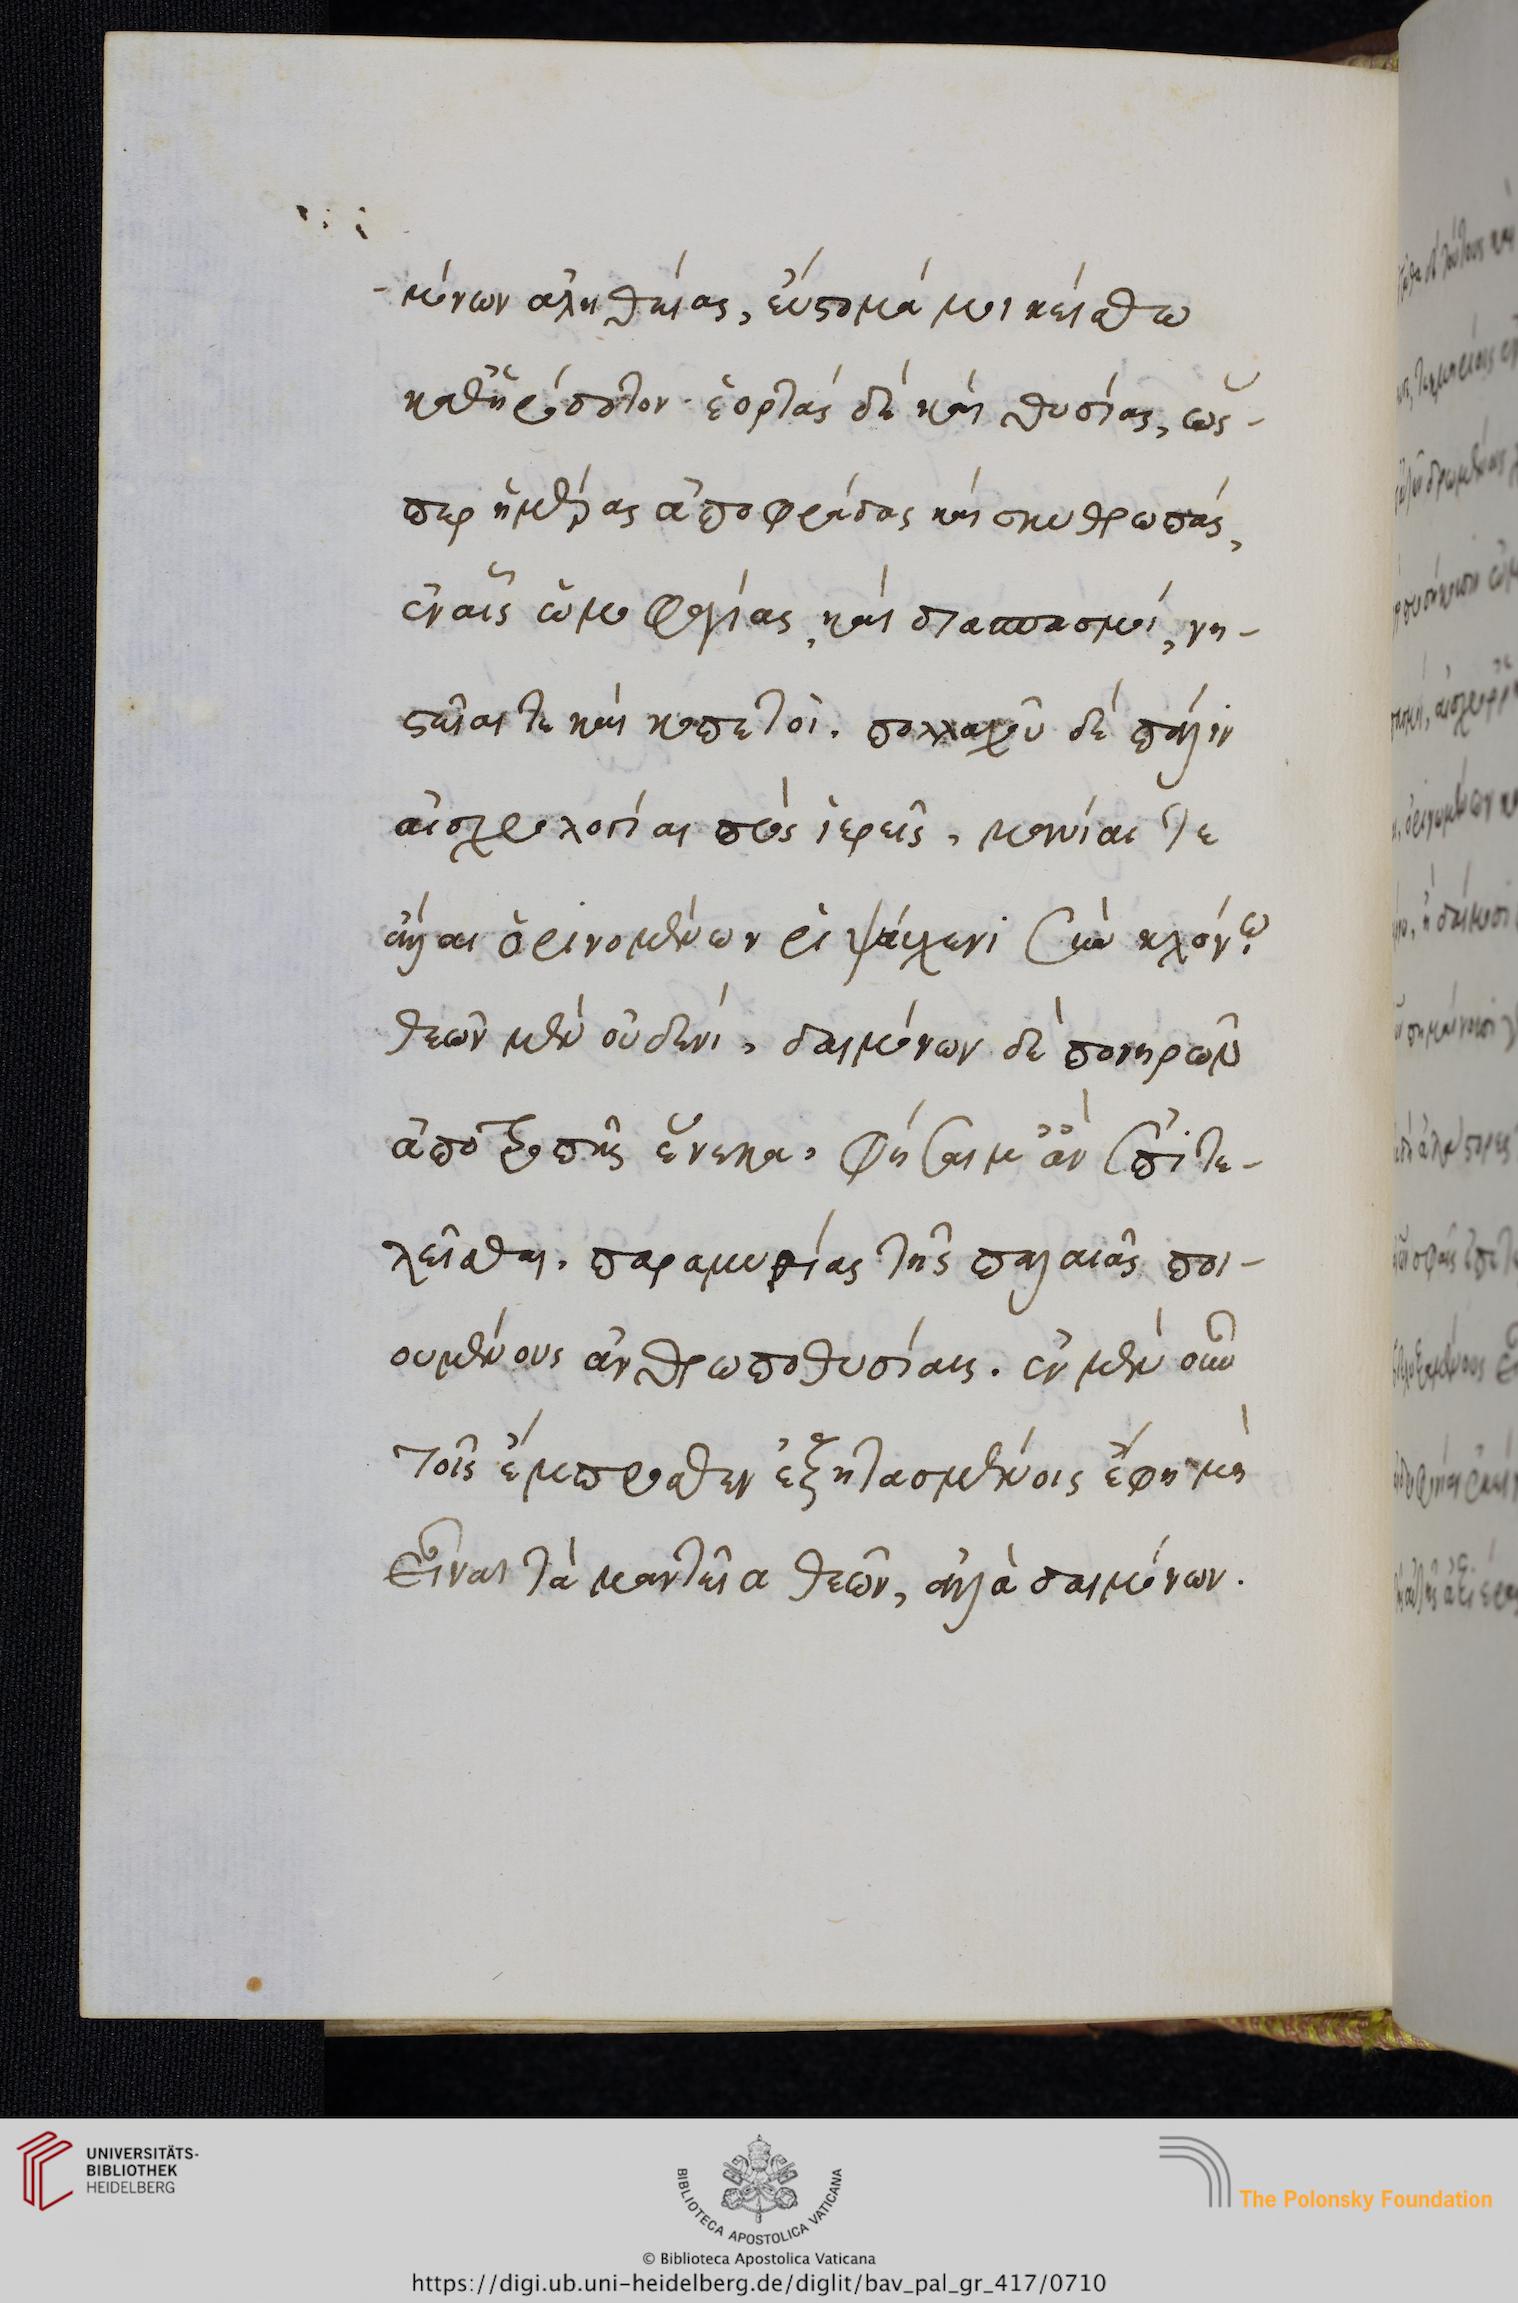 -μόνων ἀληθείας, εὔστομά μοι κείσθω
καθ' ἡρόδοτον· ἑορτὰς δὲ καὶ θυσίας, ὥς-
περ ἡμέρας ἀποφράδας καὶ σκυθρωπὰς,
ἐν αἷς ὠμοφαγίας, καὶ διασπασμοὶ, νη-
στεῖαι τε καὶ κοπετοὶ. πολλαχοῦ δὲ πάλιν
αἰσχρολογίαι πρὸς ἱερεῖς, μανίαι τε
ἄλλαι ὀρινομένων ῥιψαύχενι σὺν κλόνῳ.
θεῶν μὲν οὐδενὶ, δαιμόνων δὲ πονηρῶν
ἀποτροπῆς ἕνεκα, φήσαιμ' ἂν ἐπιτε-
λεῖσθαι. παραμυθίας τῆς παλαιᾶς ποι-
ουμένους ἀνθρωποθυσίαις. ἐν μὲν οὖν
τοῖς ἔμπροσθεν ἐξητασμένοις ἔφη μὴ
εἶναι τὰ μαντεῖα θεῶν, ἀλλὰ δαιμόνων.
UNIVERSITÄTS-
BIBLIOTHEK
HEIDELBERG
BIBLIOTECA APOSTOLICA VATICANA
The Polonsky Foundation
© Biblioteca Apostolica Vaticana
https://digi.ub.uni-heidelberg.de/diglit/bav_pal_gr_417/0710